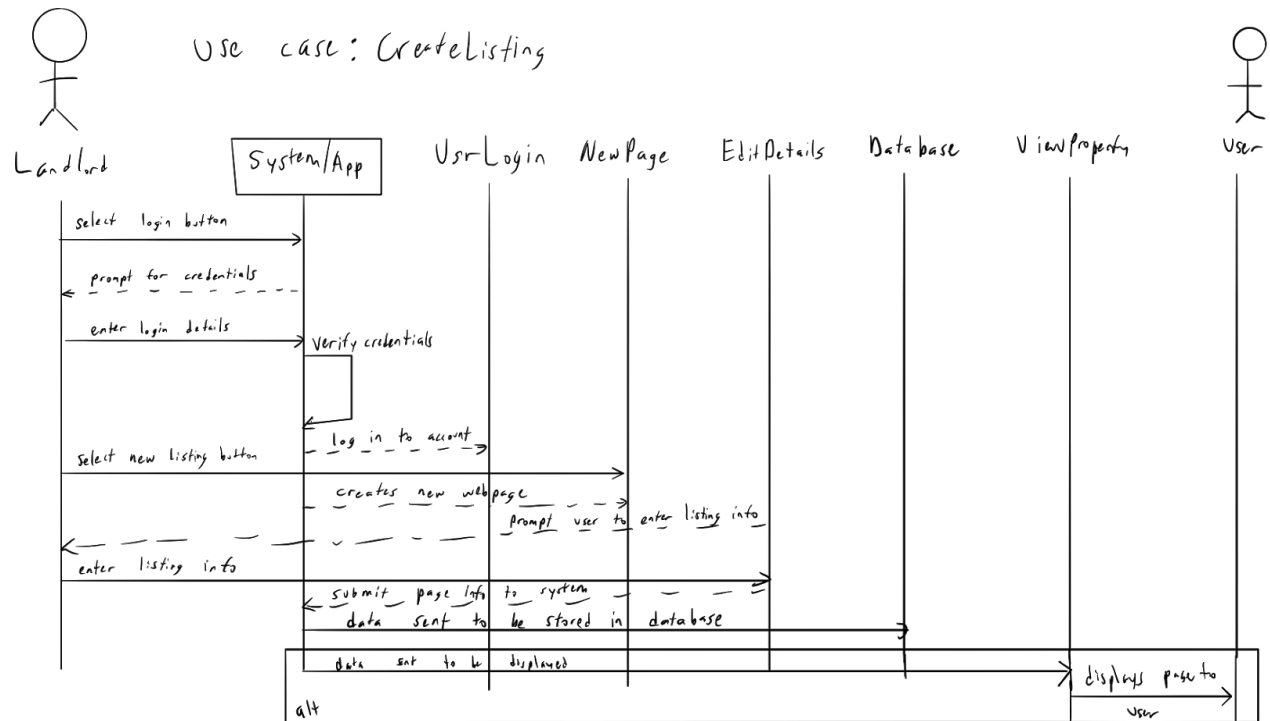 Use case: CreateListing
Landlord
System/App
UsrLogin
NewPage
EditDetails
Database
ViewProperty
User
select login button
prompt for credentials
enter login details
verify credentials
log in to account
select new listing button
creates new webpage
prompt user to enter listing info
enter listing info
submit page info to system
data sent to be stored in database
data sent to be displayed
displays page to
user
alt